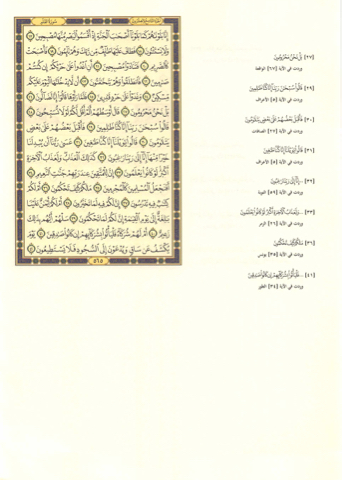 سورة القلم
إِنَّا بَلَوْنَٰهُمْ كَمَا بَلَوْنَآ أَصْحَٰبَ ٱلْجَنَّةِ إِذْ أَقْسَمُوا۟ لَيَصْرِمُنَّهَا مُصْبِحِينَ ١٧
وَلَا يَسْتَثْنُونَ ١٨ فَطَافَ عَلَيْهَا طَآئِفٌ مِّن رَّبِّكَ وَهُمْ نَآئِمُونَ ١٩ فَأَصْبَحَتْ
كَٱلصَّرِيمِ ٢٠ فَتَنَادَوْا۟ مُصْبِحِينَ ٢١ أَنِ ٱغْدُوا۟ عَلَىٰ حَرْثِكُمْ إِن كُنتُمْ
صَٰرِمِينَ ٢٢ فَٱنطَلَقُوا۟ وَهُمْ يَتَخَٰفَتُونَ ٢٣ أَن لَّا يَدْخُلَنَّهَا ٱلْيَوْمَ عَلَيْكُم
مِّسْكِينٌ ٢٤ وَغَدَوْا۟ عَلَىٰ حَرْدٍ قَٰدِرِينَ ٢٥ فَلَمَّا رَأَوْهَا قَالُوٓا۟ إِنَّا لَضَآلُّونَ ٢٦
بَلْ نَحْنُ مَحْرُومُونَ ٢٧ قَالَ أَوْسَطُهُمْ أَلَمْ أَقُل لَّكُمْ لَوْلَا تُسَبِّحُونَ ٢٨
قَالُوا۟ سُبْحَٰنَ رَبِّنَآ إِنَّا كُنَّا ظَٰلِمِينَ ٢٩ فَأَقْبَلَ بَعْضُهُمْ عَلَىٰ بَعْضٍ
يَتَلَٰوَمُونَ ٣٠ قَالُوا۟ يَٰوَيْلَنَآ إِنَّا كُنَّا طَٰغِينَ ٣١ عَسَىٰ رَبُّنَآ أَن يُبْدِلَنَا
خَيْرًا مِّنْهَآ إِنَّآ إِلَىٰ رَبِّنَا رَٰغِبُونَ ٣٢ كَذَٰلِكَ ٱلْعَذَابُ وَلَعَذَابُ ٱلْءَاخِرَةِ
أَكْبَرُ لَوْ كَانُوا۟ يَعْلَمُونَ ٣٣ إِنَّ لِلْمُتَّقِينَ عِندَ رَبِّهِمْ جَنَّٰتِ ٱلنَّعِيمِ ٣٤
أَفَنَجْعَلُ ٱلْمُسْلِمِينَ كَٱلْمُجْرِمِينَ ٣٥ مَا لَكُمْ كَيْفَ تَحْكُمُونَ ٣٦ أَمْ لَكُمْ
كِتَٰبٌ فِيهِ تَدْرُسُونَ ٣٧ إِنَّ لَكُمْ فِيهِ لَمَا تَخَيَّرُونَ ٣٨ أَمْ لَكُمْ أَيْمَٰنٌ عَلَيْنَا
بَٰلِغَةٌ إِلَىٰ يَوْمِ ٱلْقِيَٰمَةِ إِنَّ لَكُمْ لَمَا تَحْكُمُونَ ٣٩ سَلْهُمْ أَيُّهُم بِذَٰلِكَ
زَعِيمٌ ٤٠ أَمْ لَهُمْ شُرَكَآءُ فَلْيَأْتُوا۟ بِشُرَكَآئِهِمْ إِن كَانُوا۟ صَٰدِقِينَ ٤١ يَوْمَ
يُكْشَفُ عَن سَاقٍ وَيُدْعَوْنَ إِلَى ٱلسُّجُودِ فَلَا يَسْتَطِيعُونَ ٤٢
٥٦٥
[٢٧] بَلْ نَحْنُ مَحْرُومُونَ
وردت في الآية [٦٧] الواقعة
[٢٩] قَالُوا۟ سُبْحَٰنَ رَبِّنَآ إِنَّا كُنَّا ظَٰلِمِينَ
وردت في الآية [٥] الأعراف
[٣٠] فَأَقْبَلَ بَعْضُهُمْ عَلَىٰ بَعْضٍ يَتَلَٰوَمُونَ
وردت في الآية الصافات
[٣١] قَالُوا۟ يَٰوَيْلَنَآ إِنَّا كُنَّا طَٰغِينَ
وردت في الآية [٥] الأعراف
[٣٢] إِنَّآ إِلَىٰ رَبِّنَا رَٰغِبُونَ
وردت في الآية [٥٩] التوبة
[٣٣] وَلَعَذَابُ ٱلْءَاخِرَةِ أَكْبَرُ لَوْ كَانُوا۟ يَعْلَمُونَ
وردت في الآية [٢٦] الزمر
[٣٦] مَا لَكُمْ كَيْفَ تَحْكُمُونَ
وردت في الآية [٣٥] يونس
[٤١] فَلْيَأْتُوا۟ بِشُرَكَآئِهِمْ إِن كَانُوا۟ صَٰدِقِينَ
وردت في الآية [٣٤] الطور